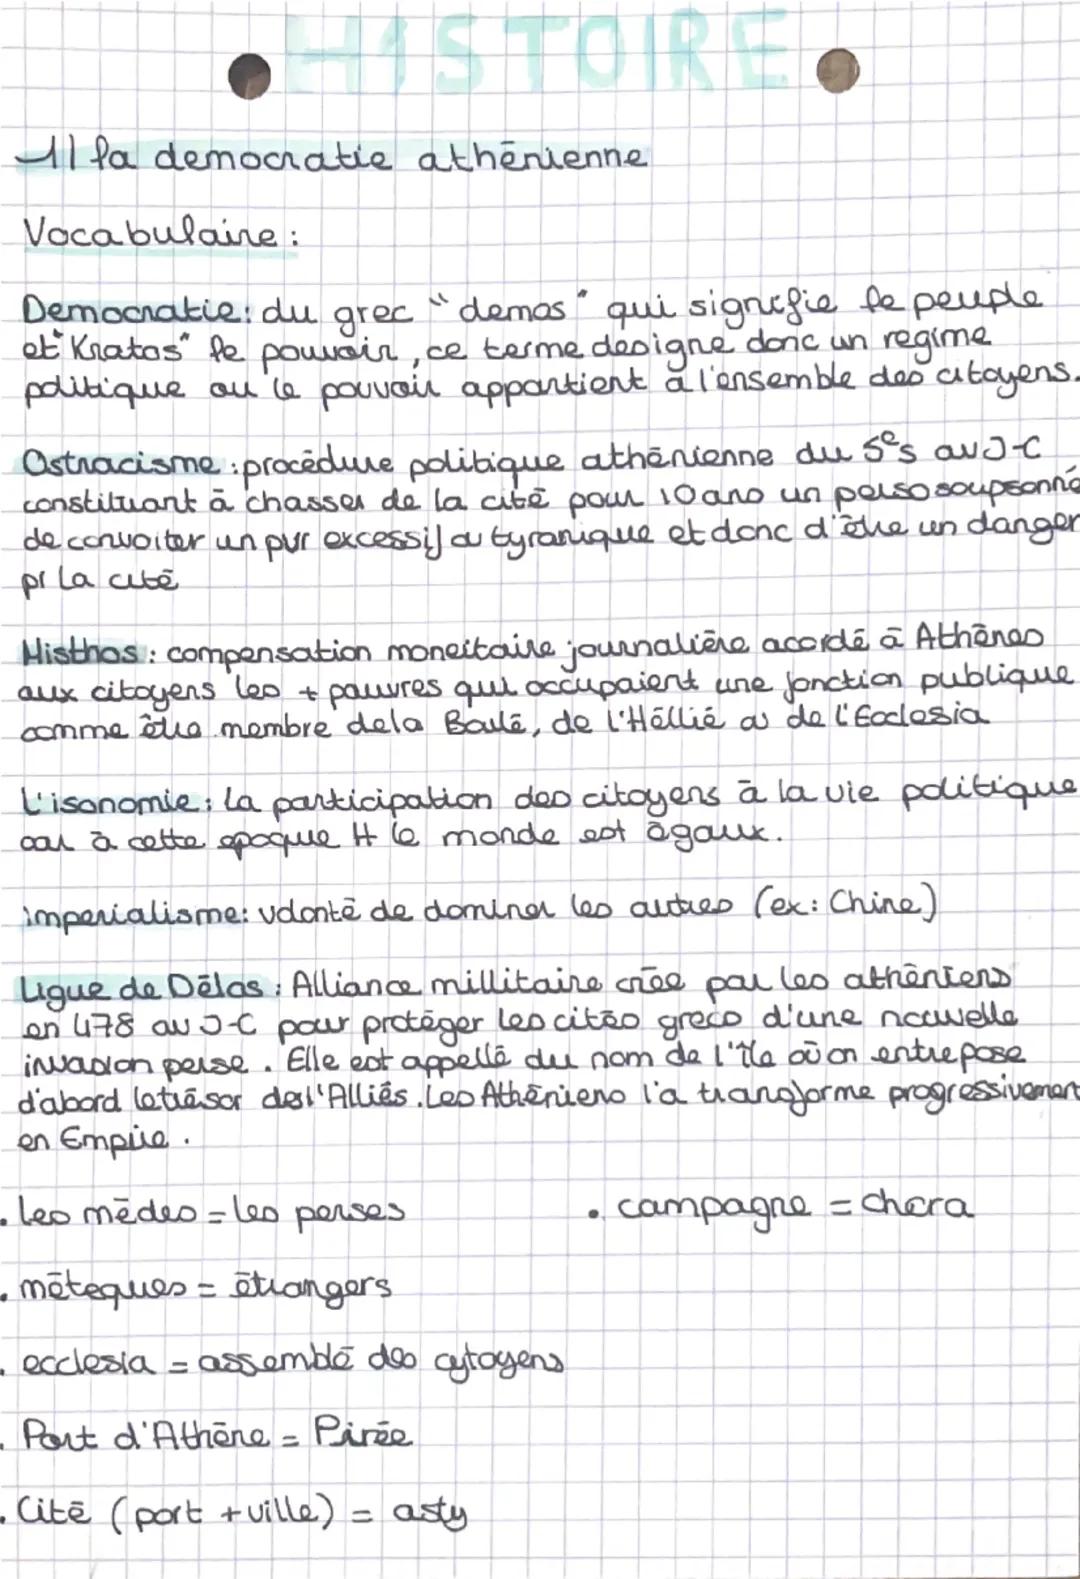 HISTOIRE
1| la democratie athēnienne
Vocabulaire :
Democratie : du grec "demos" qui signifie le peuple
et "Kratos" le pouvoir, ce terme designe donc un regime
politique ou le pouvoir appartient à l'ensemble des citoyens.
Ostracisme : procēdure politique athēnienne du 5e s av J-C
constituant à chasser de la citē pour 10 ans un perso soupsonné
de convoiter un pvr excessif ou tyranique et donc d'être un danger
pr la citē
Misthos : compensation moneitaire journalière acordē ā Athēnes
aux citoyens les + pauvres qui occupaient une fonction publique
comme être membre de la Boulē, de l'Hēllié ou de l'Ecclesia
L'isonomie : la participation des citoyens ā la vie politique
car à cette epoque tt le monde est ēgaux.
imperialisme : volontē de dominer les autres (ex : Chine)
Ligue de Dēlos : Alliance millitaire crēe par les athēniens
en 478 av J-C pour protēger les citēs grecs d'une nouvelle
invasion perse. Elle est appellē du nom de l'île où on entrepose
d'abord le trēsor des l'Alliēs. Les Athēniens l'a transforme progressivement
en Empire.
. les mēdes = les perses
. campagne = chora
. mēteques = ētrangers
. ecclesia = assemblē des cytoyens
. Port d'Athēne = Pirēe
. Citē (port + ville) = asty